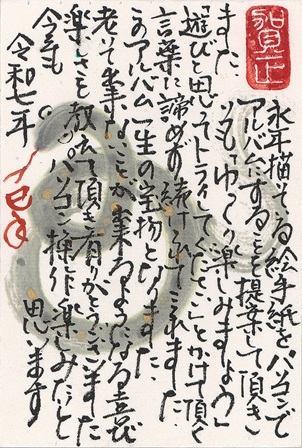 賀正
永年描いてる絵手紙をパソコンで
アルバムにすることを提案して頂き
ました いつも「ゆっくり楽しみましょう」
「遊びと思ってトライしてください」とかけて頂く
言葉に諦めず続けられてこれました
このアルバム一生の宝物となりました
老いて出来ないことが出来るようになる喜び
楽しいことを教えて頂き有りがとうございました
今年もパソコン操作楽しみたいと
思います
令和七年
巳年